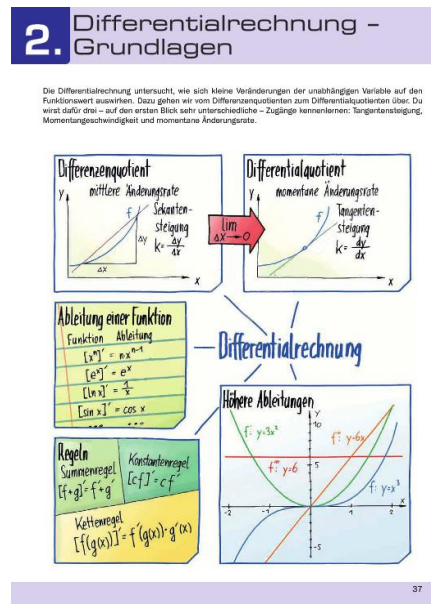 2.
Differentialrechnung –
Grundlagen
Die Differentialrechnung untersucht, wie sich kleine Veränderungen der unabhängigen Variable auf den
Funktionswert auswirken. Dazu gehen wir vom Differenzenquotienten zum Differentialquotienten über. Du
wirst dafür drei – auf den ersten Blick sehr unterschiedliche – Zugänge kennenlernen: Tangentensteigung,
Momentangeschwindigkeit und momentane Änderungsrate.
Differenzenquotient
mittlere Änderungsrate
y
f
Sekanten-
steigung
k = Δy/Δx
Δy
Δx
x
lim
Δx→0
Differentialquotient
momentane Änderungsrate
y
f
Tangenten-
steigung
k = dy/dx
x
Ableitung einer Funktion
Funktion Ableitung
[xⁿ]' = n·xⁿ⁻¹
[eˣ]' = eˣ
[ln x]' = 1/x
[sin x]' = cos x
... ... ...
Differentialrechnung
Regeln
Summenregel
[f+g]' = f'+g'
Konstantenregel
[cf]' = cf'
Kettenregel
[f(g(x))]' = f'(g(x))·g'(x)
Höhere Ableitungen
y
10
f': y=3x²
f'': y=6x
f''': y=6
5
f: y=x³
x
-2 -1 1 2
-5
37